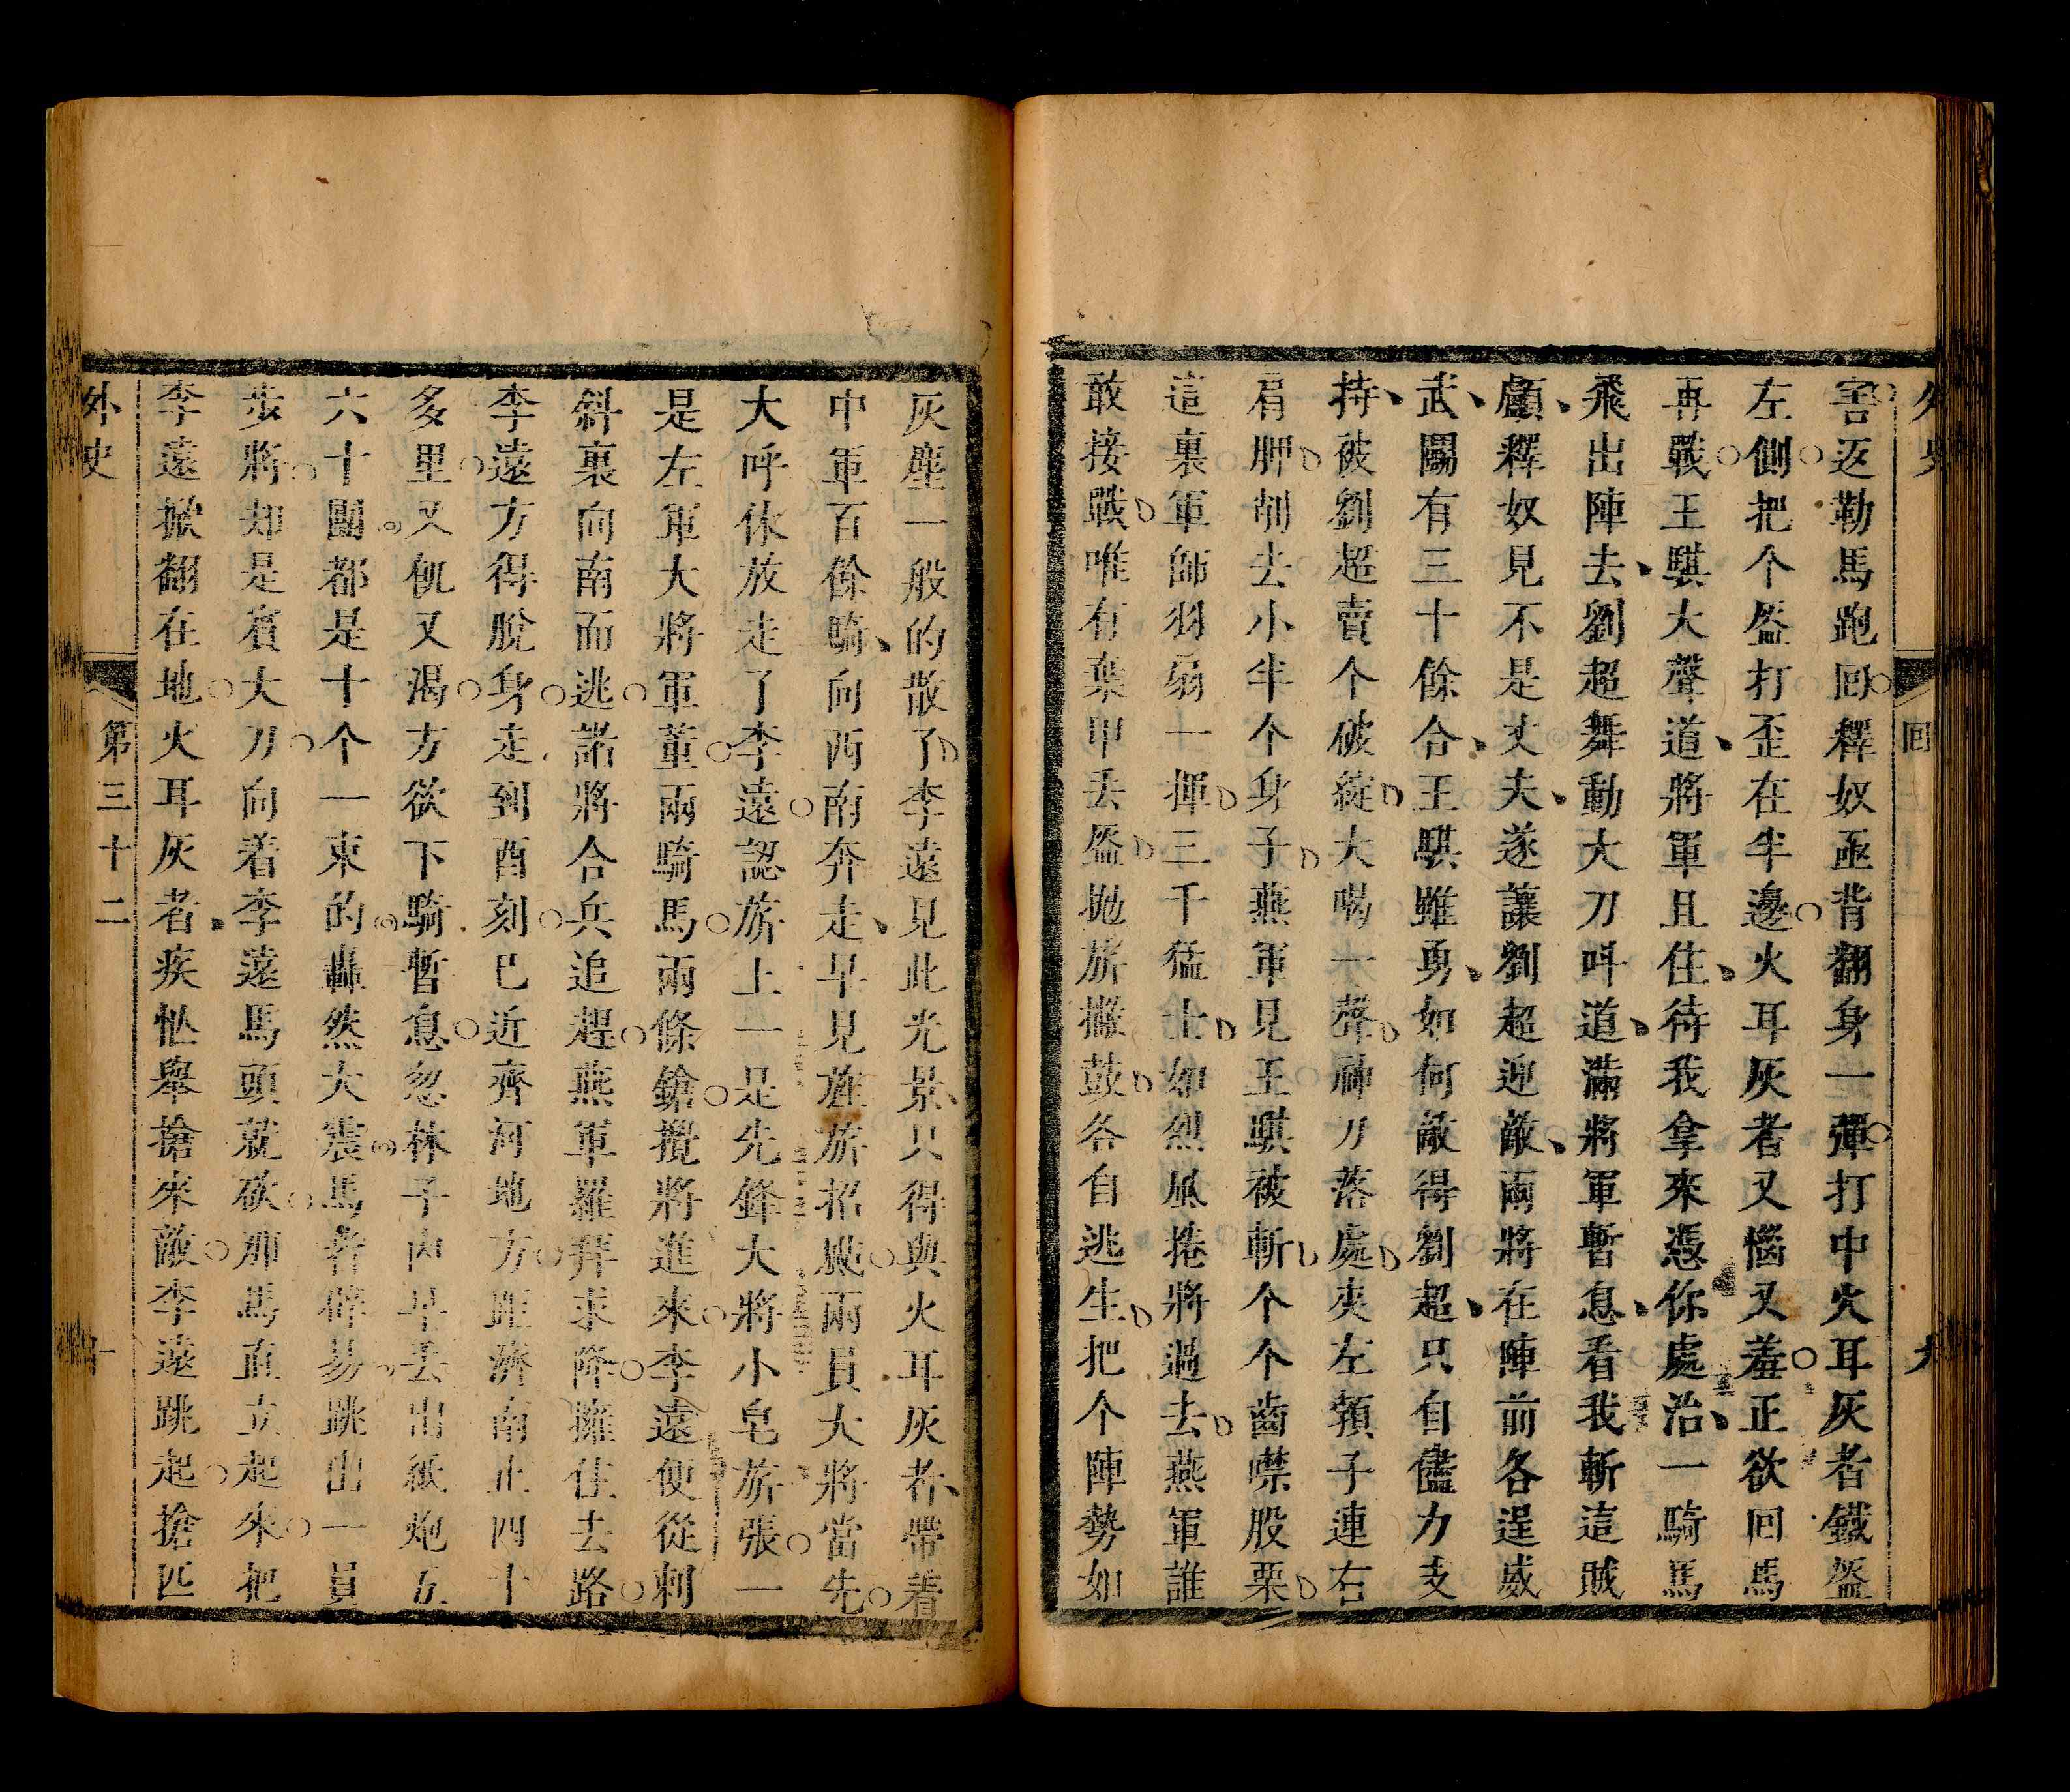 外史
回
九
害返勒馬跑回釋奴亟背翻身一彈打中火耳灰者鐵盔
左側把个盔打歪在半邊火耳灰者又惱又羞正欲回馬
再戰王騏大聲道將軍且住待我拿來憑你處治一騎馬
飛出陣去劉超舞動大刀呌道滿將軍暫息看我斬這賊
顱釋奴見不是丈夫遂讓劉超迎敵兩將在陣前各逞威
武鬭有三十餘合王騏雖勇如何敵得劉超只自儘力支
持被劉超賣个破綻大喝一聲神刀落處夾左頷子連右
肩胛削去小半个身子燕軍見王騏被斬个个齒噤股栗
這裏軍師羽扇一揮三千猛士如烈風捲將過去燕軍誰
敢接戰唯有棄甲丢盔拋旂撇鼓各自逃生把个陣勢如
灰塵一般的散了李遠見此光景只得與火耳灰者帶着
中軍百餘騎向西南奔走早見旌旂招颭兩員大將當先
大呼休放走了李遠認旂上一是先鋒大將小皂旂張一
是左軍大將軍董兩騎馬兩條鎗攪將進來李遠便從刺
斜裏向南而逃諸將合兵追趕燕軍羅拜求降擁住去路
李遠方得脫身走到酉刻巳近齊河地方距濟南止四十
多里又飢又渴方欲下騎暫息忽林子內早丢出紙炮五
六十個都是十个一束的轟然大震馬者辟易跳出一員
步將却是賓大刀向着李遠馬頭就砍那馬直立起來把
李遠掀翻在地火耳灰者疾忙舉搶來敵李遠跳起搶匹
外史
第三十二
十